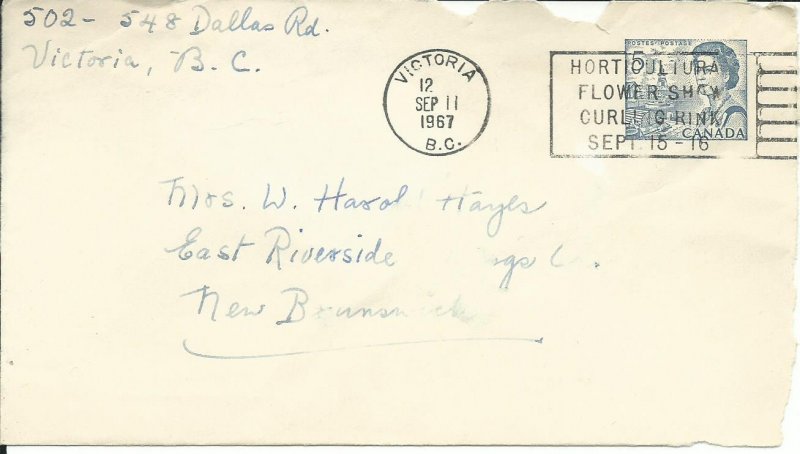 502 - 548 Dallas Rd.
Victoria, B. C.
VICTORIA
12
SEP 11
1967
B.C.
HORTICULTURA
FLOWER SHOW
CURLING RINK
SEPT. 15 - 16
POSTES POSTAGE
5
CANADA
Mrs. W. Harol Hayes
East Riverside
New Brunswick